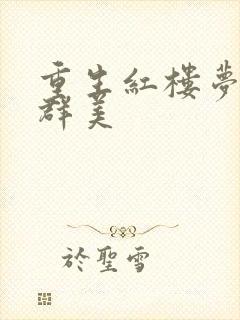 重生紅樓夢
群美
於聖雪